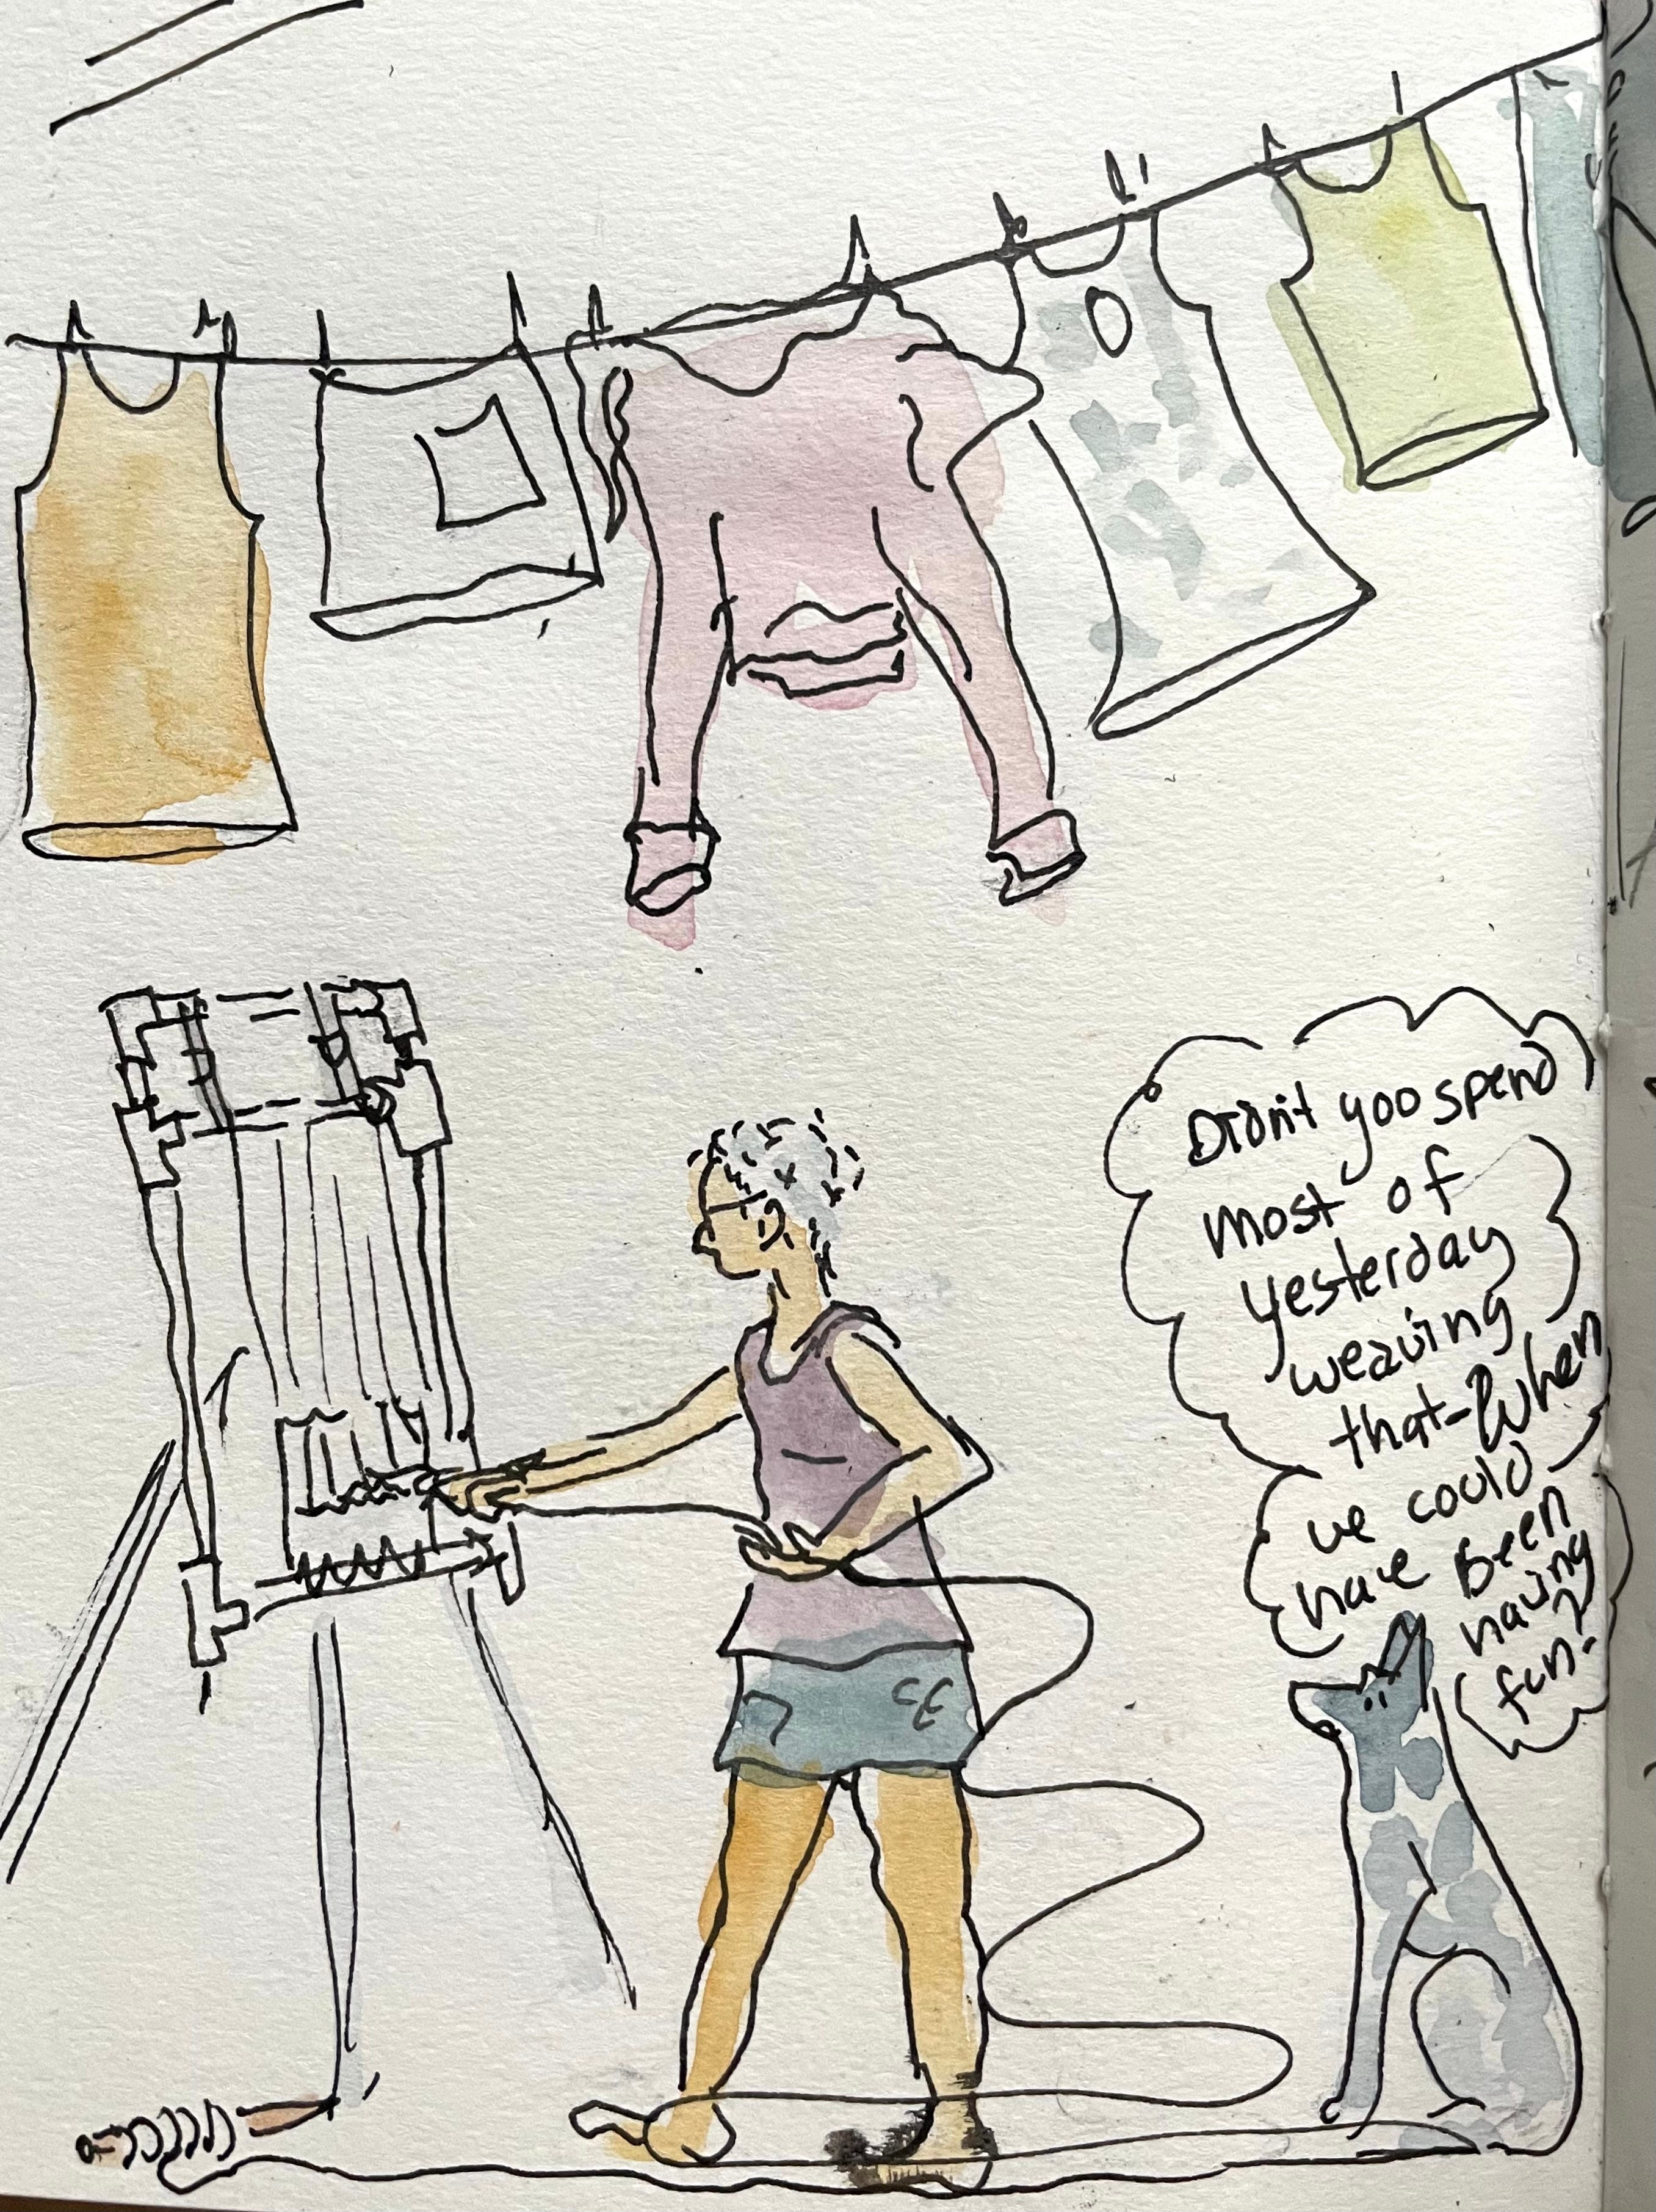 Didn't you spend
most of
yesterday
weaving
that-When
we could
have Been
having
fun?